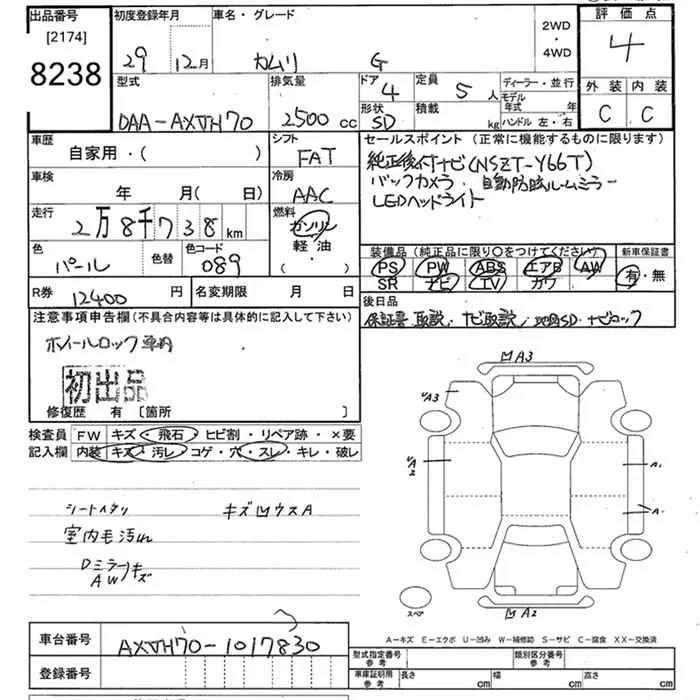 出品番号
[2174]
8238
初度登録年月
29 12月
車名・グレード
カムリ G
2WD
・
4WD
評価点
4
外装 内装
C C
型式
DAA-AXVH70
排気量
2500 cc
ドア 4
形状 SD
定員 5 人
積載 kg
ディーラー・並行
モデル年式 年
ハンドル 左・右
車歴
自家用・( )
シフト
FAT
セールスポイント (正常に機能するものに限ります)
純正後付ナビ(NSZT-Y66T)
バックカメラ・自動防眩ルームミラー
LEDヘッドライト
車検
年 月( 日)
冷房
AAC
走行
2万8千738km
燃料
ガソリン
軽油
( )
色
パール
色替
色コード
089
装備品 (純正品に限り〇をつけてください)
PS PW ABS エアB AW
SR ナビ TV カワ
新車保証書
有・無
R券 12400 円
名変期限 月 日
後日品
保証書 取説・ナビ取説・地図SD・ナビロック
注意事項申告欄(不具合内容等は具体的に記入して下さい)
ホイールロック 車内
初出品
修復歴 有 [箇所 ]
検査員記入欄
FW キズ・飛石・ヒビ割・リペア跡・×要
内装 キズ・汚レ・コゲ・穴・スレ・キレ・破レ
シートヘタリ
キズ凹ウスA
室内毛汚れ
Dミラーキズ
AW
凹A3
A3
A2
A1
A-
凹A2
スペア
A-キズ E-エクボ U-凹み W-補修跡 S-サビ C-腐食 XX-交換済
車台番号
AXVH70-1017830
登録番号
型式指定番号
参考
類別区分番号
参考
車庫証明用
参考
長さ cm
幅 cm
高さ cm